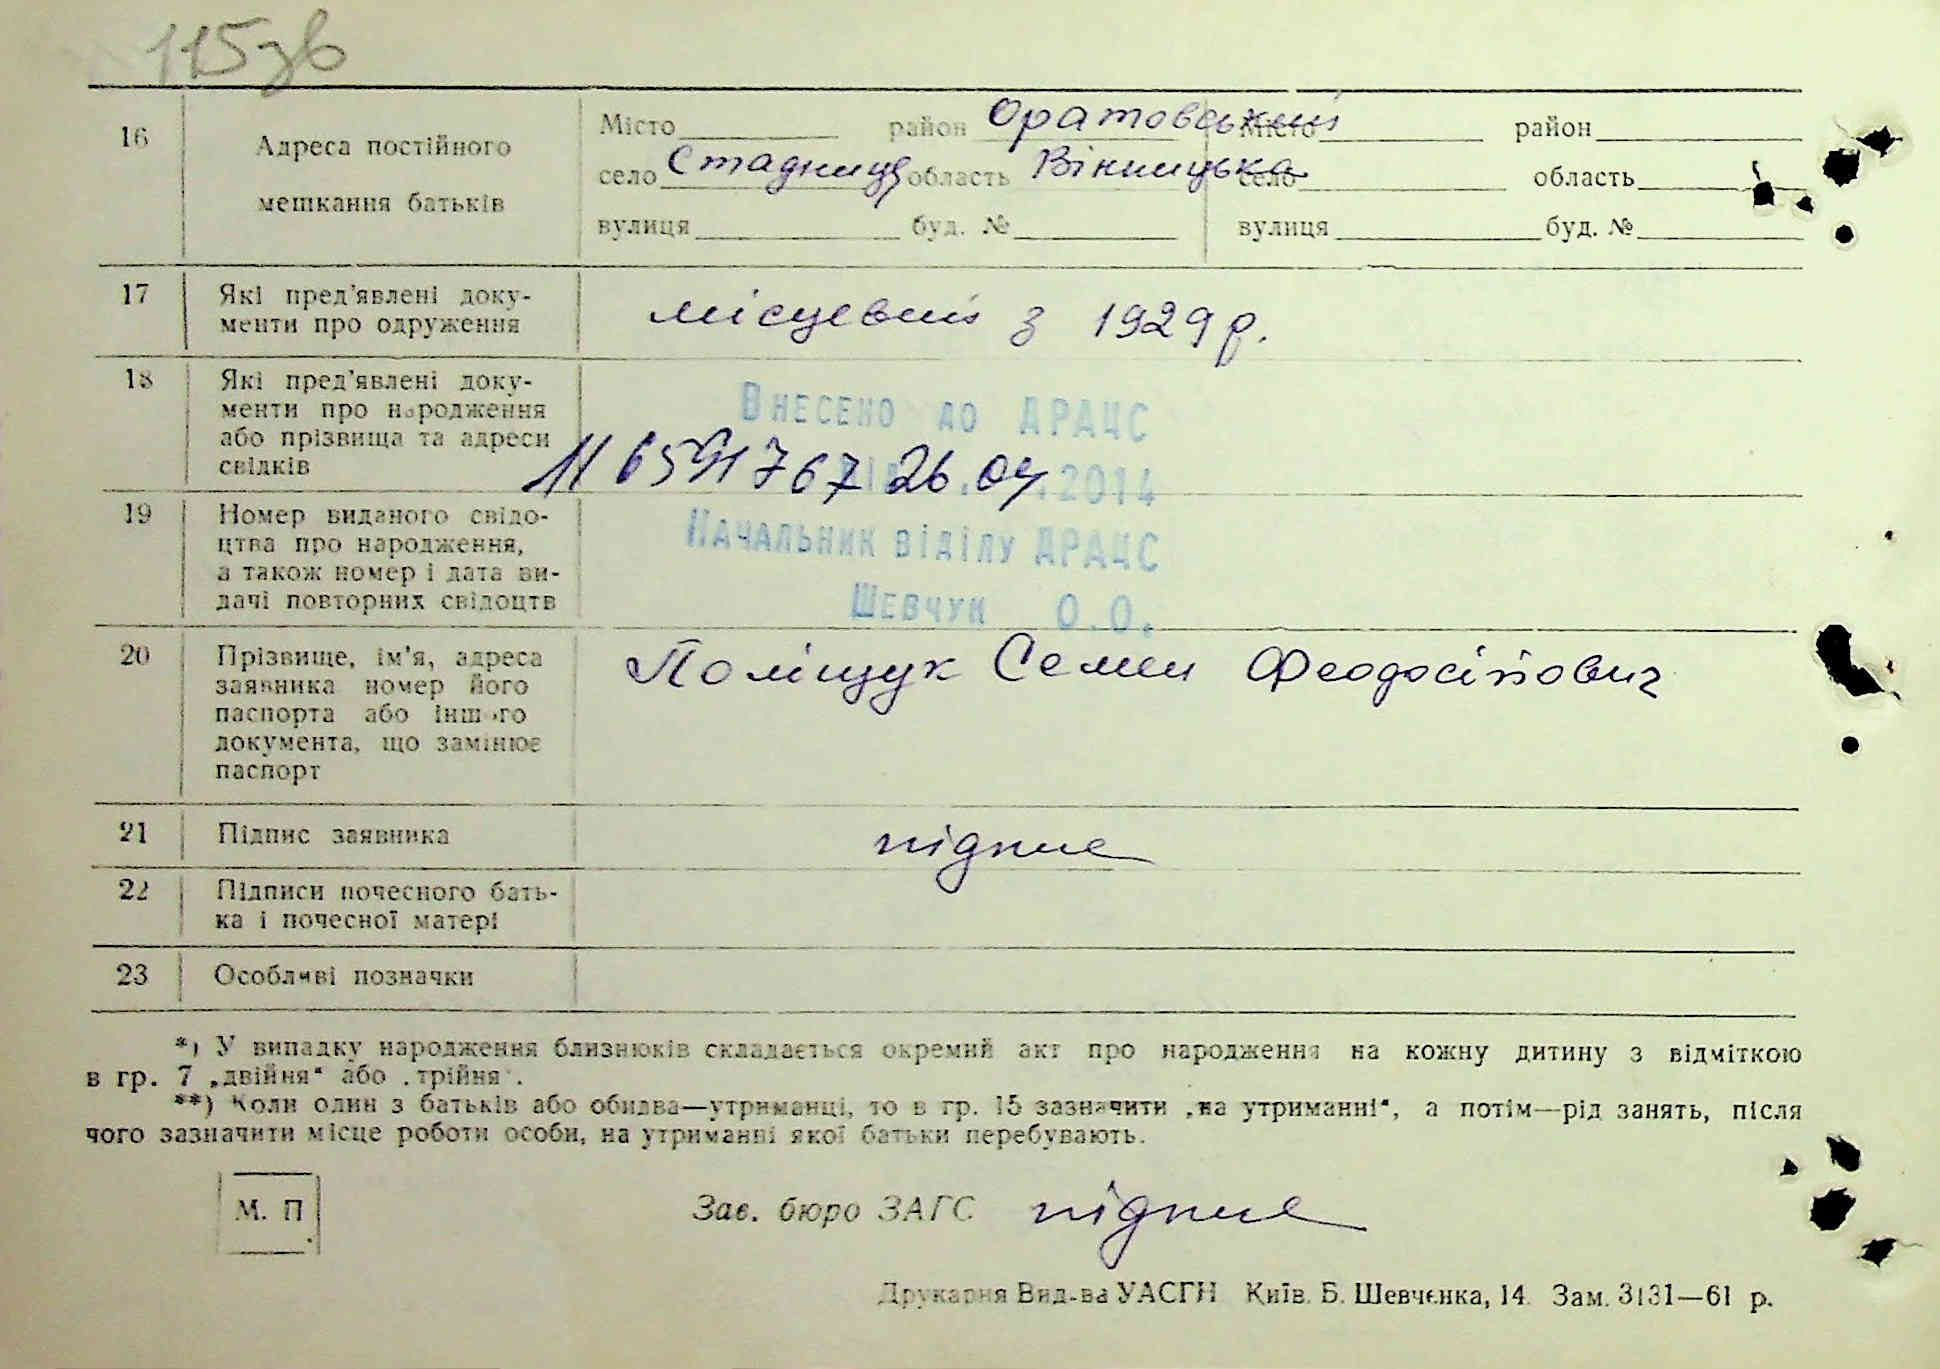 115зв
16 Адреса постійного мешкання батьків
Місто район Оратовський Місто район
село Стадниця область Вінницька село область
вулиця буд. № вулиця буд. №
17 Які пред'явлені доку-
менти про одруження
місцевий з 1929 р.
18 Які пред'явлені доку-
менти про народження
або прізвища та адреси
свідків
Внесено до ДРАЦС
26.04.2014
Начальник відділу ДРАЦС
Шевчук О.О.
19 Номер виданого свідо-
цтва про народження,
а також номер і дата ви-
дачі повторних свідоцтв
20 Прізвище, ім'я, адреса
заявника номер його
паспорта або іншого
документа, що замінює
паспорт
Поліщук Семен Феодосійович
21 Підпис заявника підпис
22 Підписи почесного бать-
ка і почесної матері
23 Особливі позначки
*) У випадку народження близнюків складається окремий акт про народження на кожну дитину з відміткою
в гр. 7 „двійня“ або „трійня“.
**) Коли один з батьків або обидва—утриманці, то в гр. 15 зазначити „на утриманні“, а потім—рід занять, після
чого зазначити місце роботи особи, на утриманні якої батьки перебувають.
М. П.
Зав. бюро ЗАГС підпис
Друкарня Вид-ва УАСГН Київ. Б. Шевченка, 14. Зам. 3131—61 р.